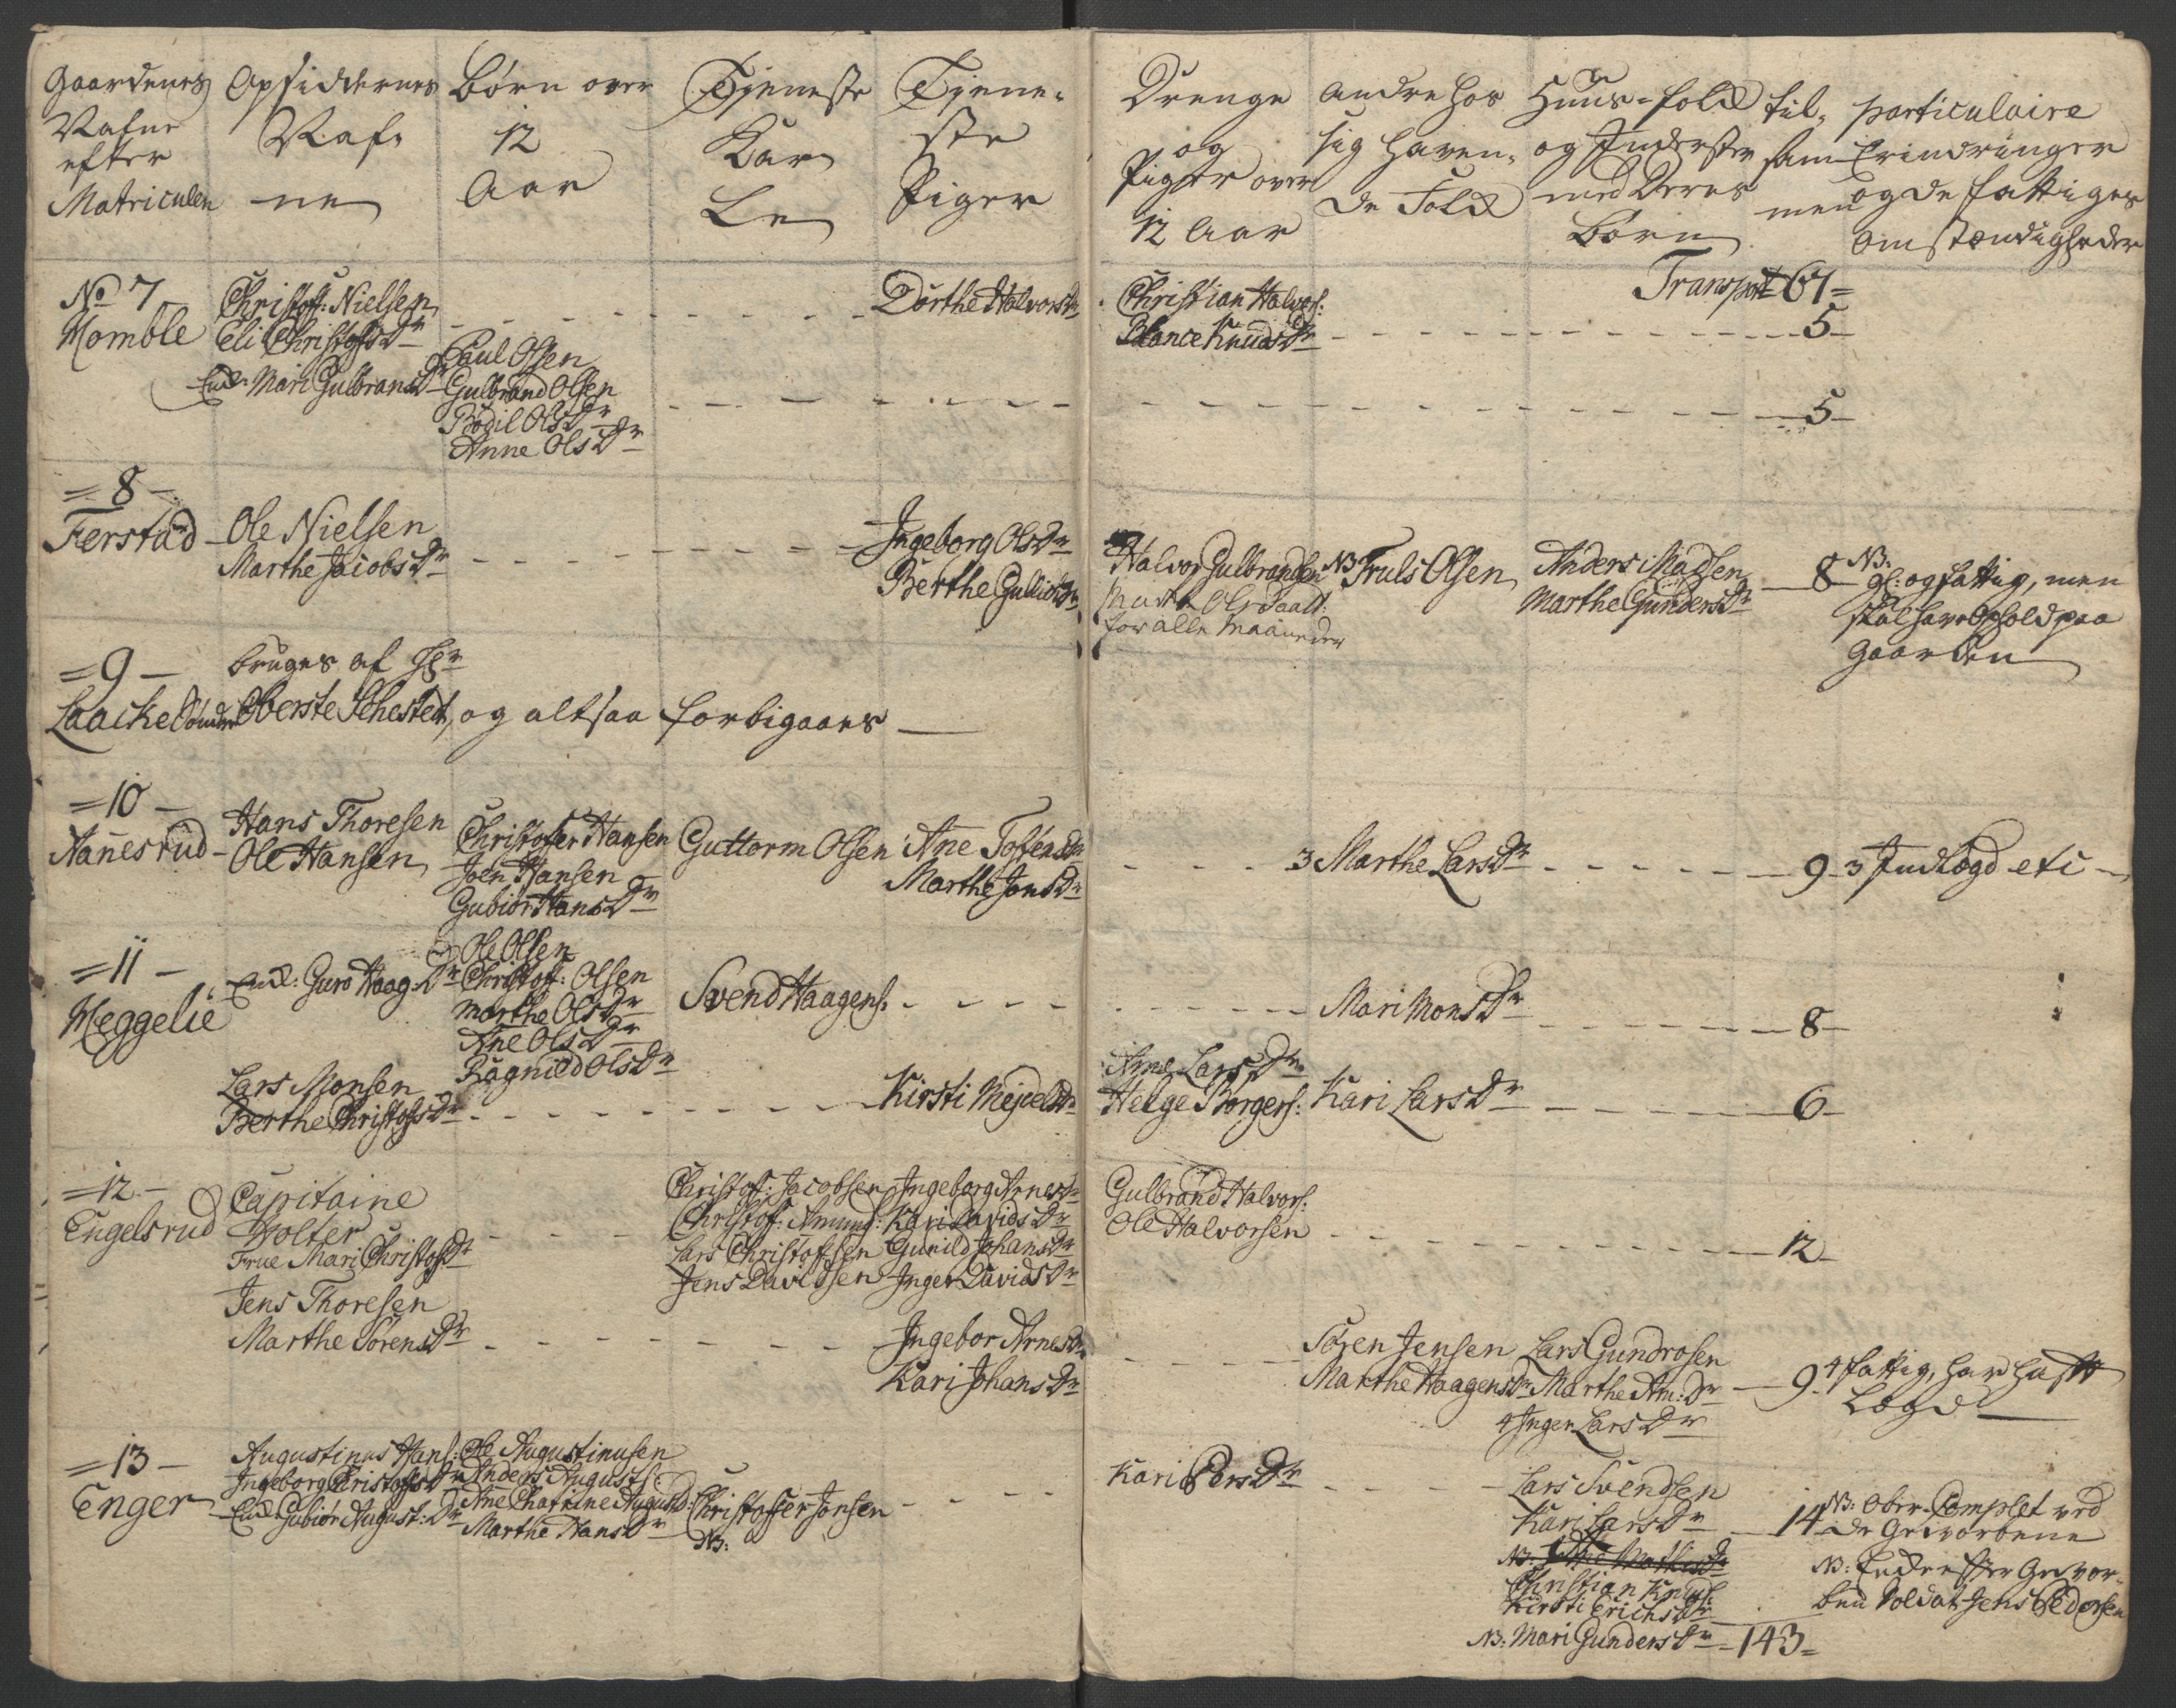 Gaardenes
Nafne
efter
Matriculen
Opsiddernes
Naf-
ne
Børn over
12
Aar
Tjeneste
Kar
Le
Tjene-
ste
Piger
Drenge
og
Piger over
12 Aar
Andre hos
sig haven-
de Folk
Huus-folk
og Inderster
med Deres
Børn
til-
sam
men
particulaire
Erindringer
og de fattiges
Omstændigheder
Transport 67=
No 7
Homble
Christoff: Nielsen
Eli Christofsdr
Dorthe Halvorsdr
Christian Halvors:
Knudsdr
5
Enk: Mari Gulbransdr
Paul Olsen
Gulbrand Olsen
Bodil Olsdr
Anne Olsdr
5
=8-
Ferstad
Ole Nielsen
Marthe Jacobsdr
Ingeborg Olsdr
Berthe Gulliksdr
Halvor Gulbrandsen
for alle Maaneder
NB Truls Olsen
Anders Madsen
Marthe Gundersdr
8
NB:
gl: og fattig, men
skal have Ophold paa
Gaarden
=9-
Laache Søndre
bruges af Hr
Oberste Sehested, og altsaa forbigaaes
=10-
Aanesrud
Hans Thoresen
Ole Hansen
Christofer Hansen
Joen Hansen
Gubiør Hansdr
Guttorm Olsen
Ane Tostensdr
Marthe Jonsdr
3 Marthe Larsdr
9
3 Indlogd etc
=11-
Heggelie
Enk: Guro Haag:dr
Ole Olsen
Christoff: Olsen
Marthe Olsdr
Ane Olsdr
Ragnild Olsdr
Svend Haagens:
Mari Monsdr
8
Lars Monsen
Berthe Christofsdr
Kirsti
Arne Larsdr
Helge Borgers:
Kari Larsdr
6
=12-
Engelsrud
Capitaine
Wolter
Frue Mari Christofsdr
Christoff: Jacobsen
Christoff: Amund:
Lars Christofsen
Jens Davidsen
Ingeborg Arnesdr
Kari Davidsdr
Gunild Johansdr
Inger Davidsdr
Gulbrand Halvors:
Ole Halvorsen
12
Jens Thoresen
Marthe Sørensdr
Ingebor Arnesdr
Kari Johansdr
Søren Jensen
Marthe Haagensdr
Lars Gundrosen
Marthe Am:dr
4 Inger Larsdr
9
4 fattig, har hafft
Logd
=13-
Enger
Augustinus Hans:
Ingeborg Christofsdr
Enk: Gubiør August:dr
Ole Augustinusen
Anders Augusts:
Ane Chatrine Augustd:
Marthe Hansdr
Christoffer Jonsen
NB:
Kari Persdr
Lars Svendsen
Kari Larsdr
Christian Knuds:
Kirsti Erichsdr
NB: Mari Gundersdr
14
NB: Ober-Complet ved
de Gevorbene
NB: Enke efter Gevor-
ben Soldat Jens Pedersen
143=